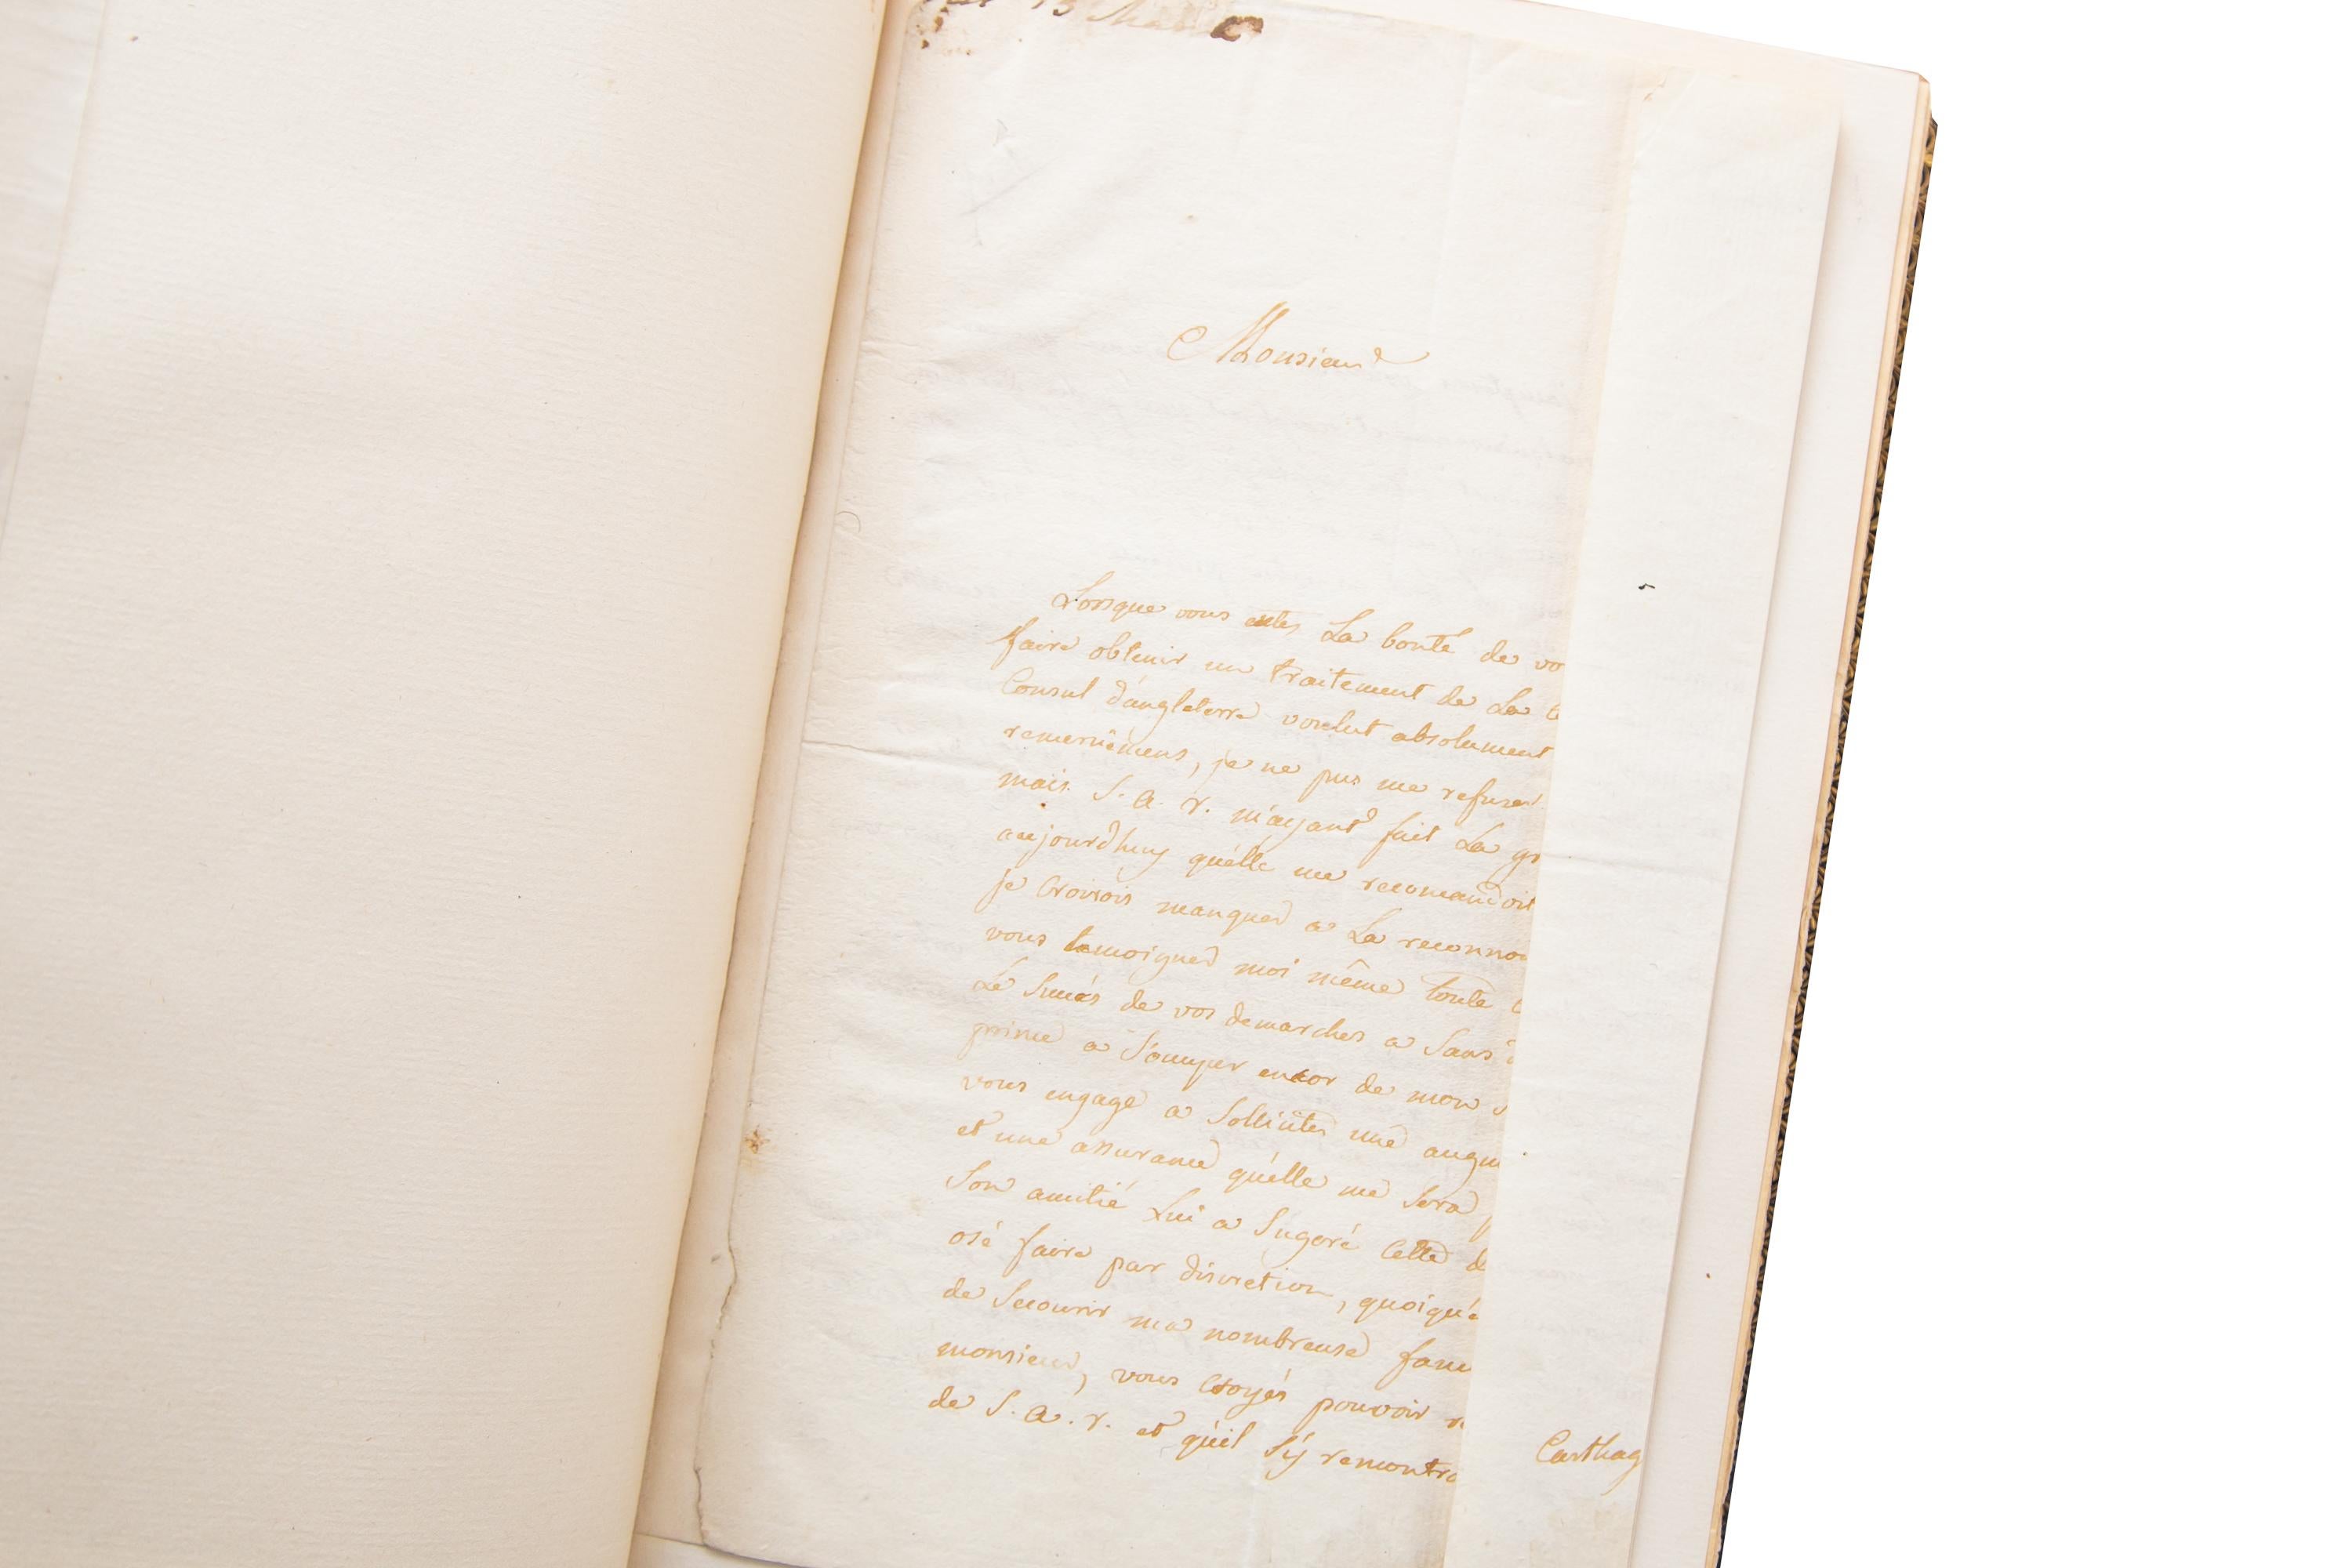 13 Mai
Monsieur
Lorsque vous eutes La bonté de vo
faire obtenir un traitement de La C
Consul d'angleterre voulut absolument
remerciemens, je ne pus me refuser
mais S. a. r. m'ayant fait La gr
aujourdhuy qu'elle me recomandoit
je Croirois manquer a La reconnoi
vous temoigner moi même toute
Le Succés de vos demarches a Sans d
prince a S'occuper encor de mon S
vous engage a Solliciter une augm
et une assurance qu'elle me Sera p
Son amitié Lui a Sugeré Cette de
osé faire par discretion, quoiqu'e
de Secourir ma nombreuse fami
monsieur, vous Croyés pouvoir re
de S. a. r. et qu'il S'y remontra
Carthag